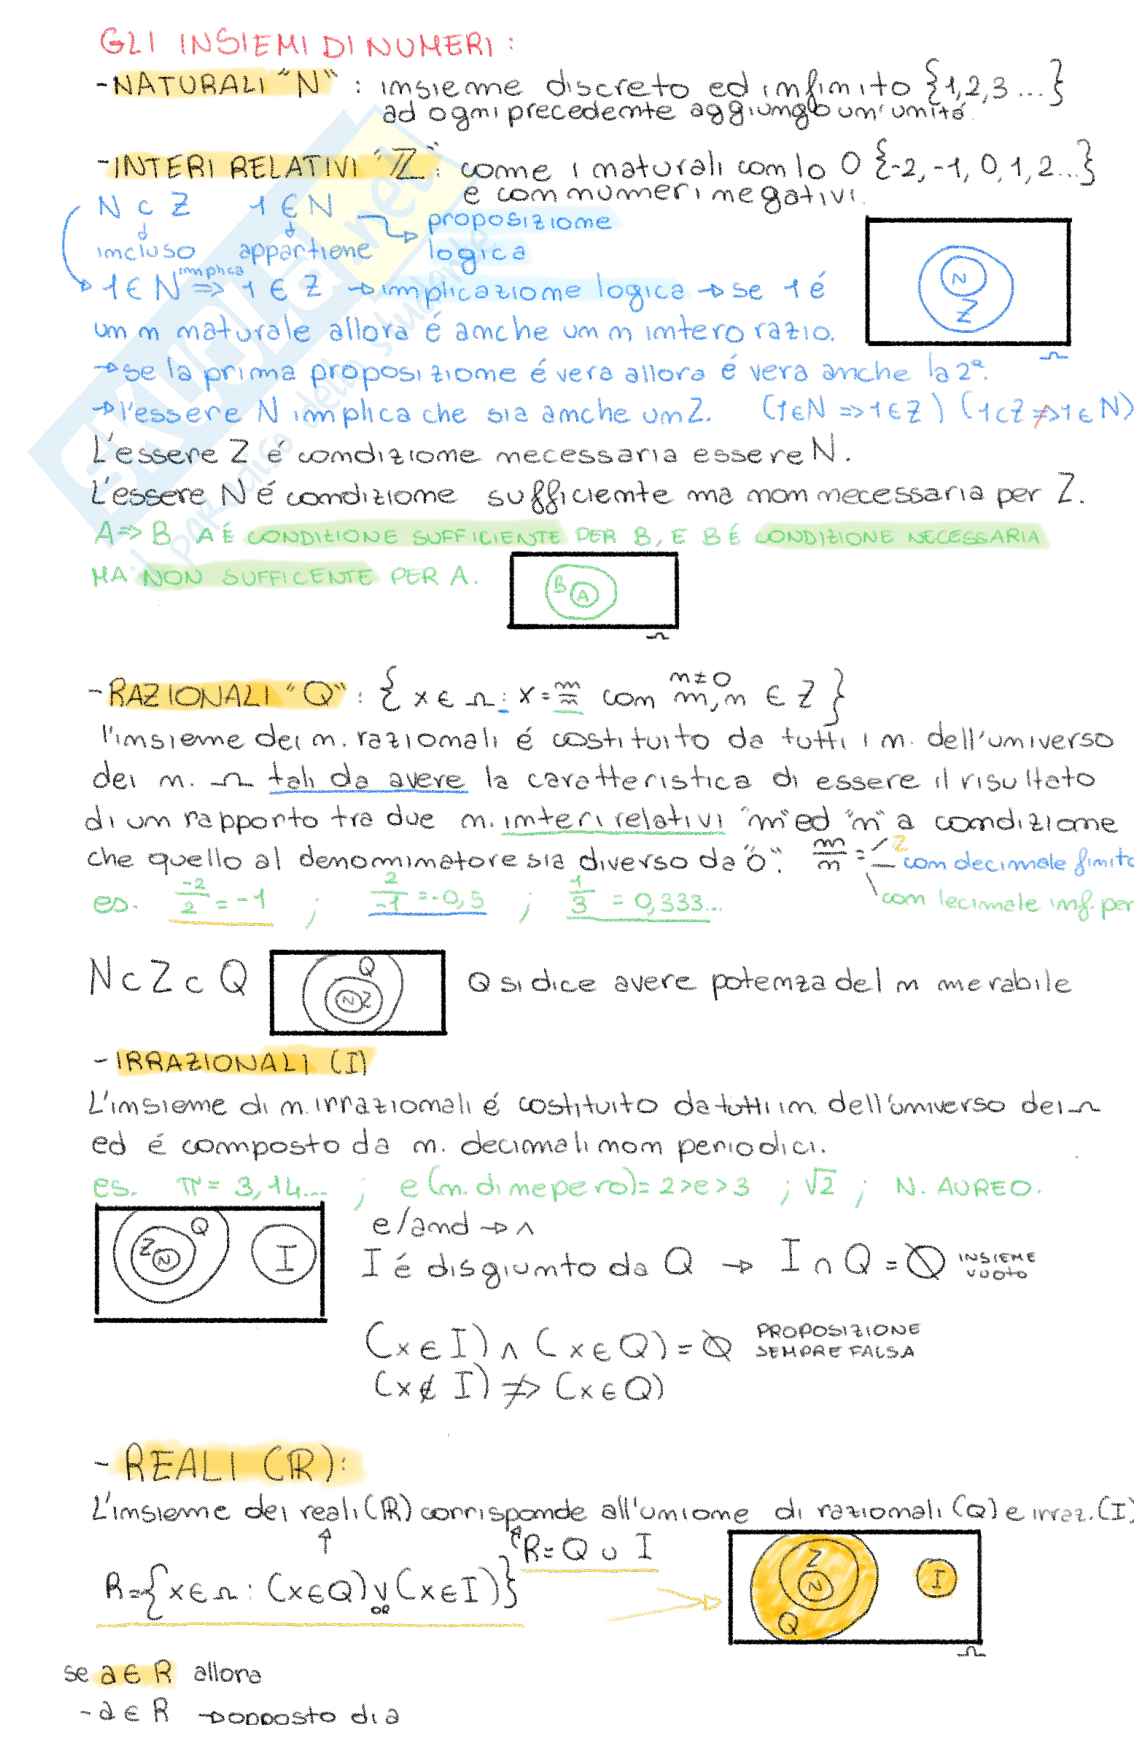 GLI INSIEMI DI NUMERI:
-NATURALI "N" : insieme discreto ed infinito {1,2,3...}
ad ogni precedente aggiungo un'unitá
-INTERI RELATIVI "ℤ": come i naturali con lo 0 {-2,-1,0,1,2...}
e con numeri negativi.
N c Z 1 ∈ N proposizione
incluso appartiene logica
1∈N implica => 1 ∈ Z → implicazione logica → se 1 é
N
Z
Ω
un n naturale allora é anche un n intero razio.
→ se la prima proposizione é vera allora é vera anche la 2ª.
→ l'essere N implica che sia anche un Z. (1∈N => 1∈Z) (1cZ ≠> 1∈N)
L'essere Z é condizione necessaria essere N.
L'essere N é condizione sufficiente ma non necessaria per Z.
A=> B A É CONDIZIONE SUFFICIENTE PER B, E B É CONDIZIONE NECESSARIA
MA NON SUFFICENTE PER A.
B A
Ω
-RAZIONALI "Q": { x ∈ Ω : x = m/n con m,n ∈ Z } n≠0
l'insieme dei n. razionali é costituito da tutti i n. dell'universo
dei n. Ω tali da avere la caratteristica di essere il risultato
di un rapporto tra due n. interi relativi "m" ed "n" a condizione
che quello al denominatore sia diverso da "0". m/n = Z
con decimale finito
es. -2/2 = -1 ; 2/-1 = -0,5 ; 1/3 = 0,333... con lecimale inf. per
N c Z c Q Q N Z Q si dice avere potenza del n merabile
- IRRAZIONALI (I)
L'insieme di n. irrazionali é costituito da tutti i n. dell'universo dei Ω
ed é composto da n. decimali non periodici.
es. π = 3,14... ; e (n. di nepero) = 2>e>3 ; √2 ; N. AUREO.
Z N Q I
e/and → ∧
I é disgiunto da Q → I ∩ Q = Ø INSIEME
VUOTO
(x ∈ I) ∧ (x ∈ Q) = Ø PROPOSIZIONE
SEMPRE FALSA
(x ∉ I) ≠> (x ∈ Q)
- REALI (ℝ):
L'insieme dei reali (ℝ) corrisponde all'unione di razionali (Q) e irraz. (I)
↑ ↑ R = Q ∪ I
R = {x ∈ Ω : (x∈Q) ∨ (x∈I)}
OR
Z N Q I
Ω
se a ∈ R allora
-a ∈ R → opposto di a